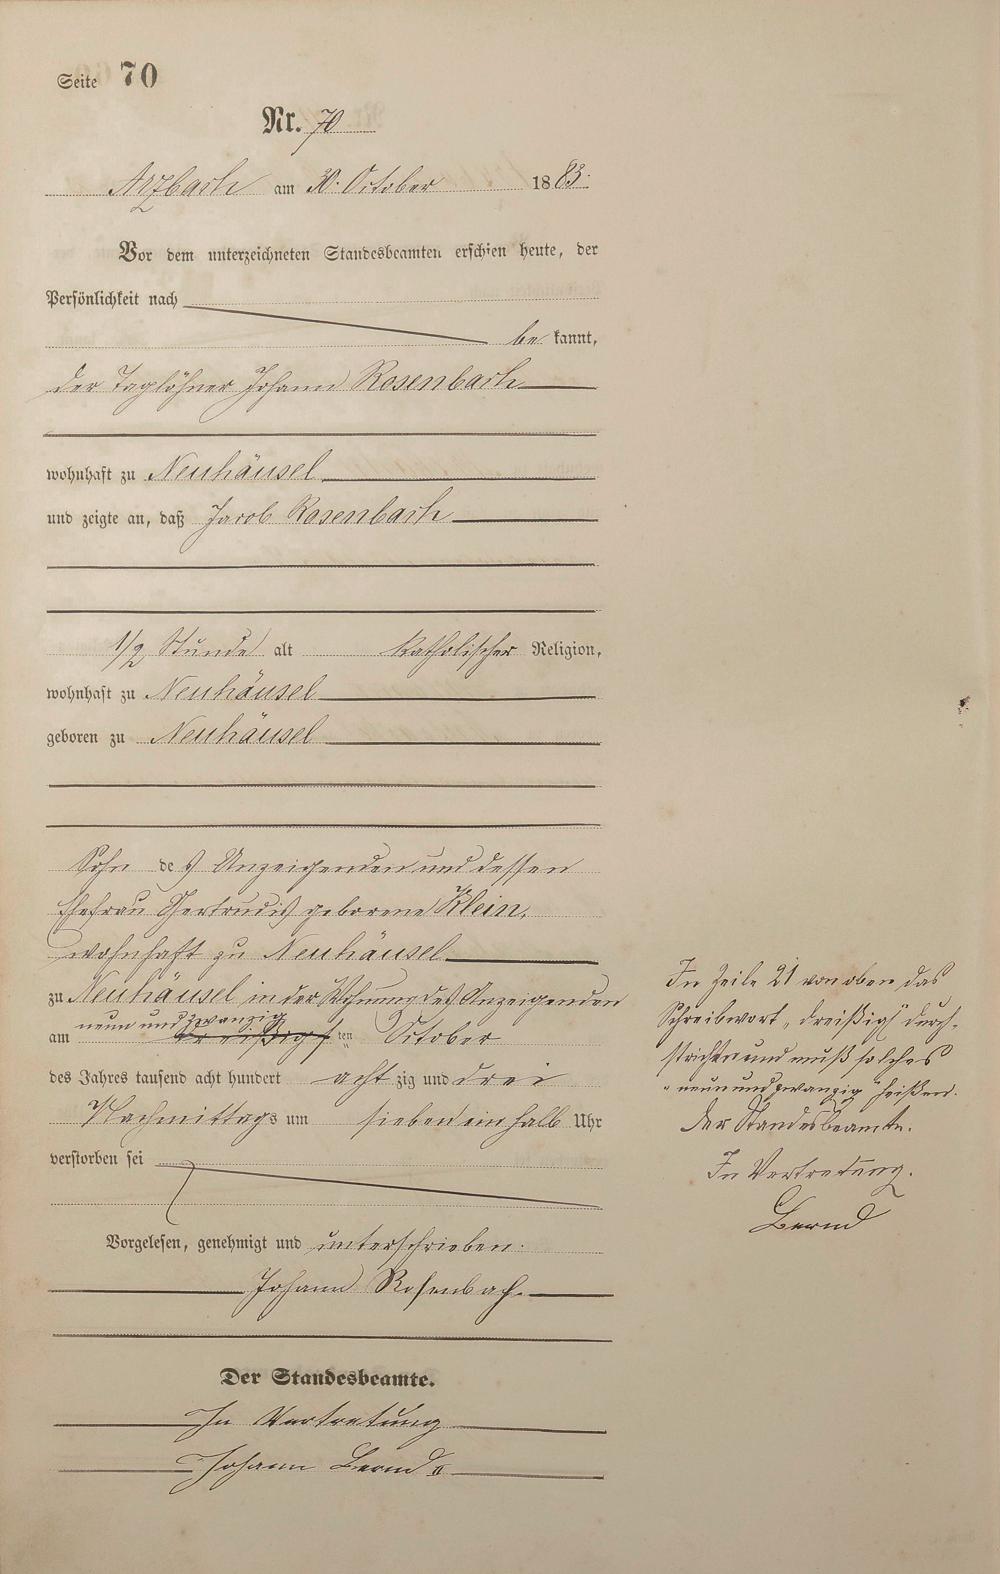 Seite 70
Nr. 70
Arzbach am 30. October 1883.
Vor dem unterzeichneten Standesbeamten erschien heute, der
Persönlichkeit nach
be kannt,
der Taglöhner Johann Rosenbach
wohnhaft zu Neuhäusel
und zeigte an, daß Jacob Rosenbach
1/2 Stunde alt katholischer Religion,
wohnhaft zu Neuhäusel
geboren zu Neuhäusel
Sohn des Anzeigenden und dessen
Ehefrau Gertrudis geborene Klein,
wohnhaft zu Neuhäusel
zu Neuhäusel in der Wohnung des Anzeigenden
neun und zwanzig
am dreißigsten October
des Jahres tausend acht hundert acht zig und drei
Nachmittags um sieben ein halb Uhr
verstorben sei
Vorgelesen, genehmigt und unterschrieben.
Johann Rosenbach.
Der Standesbeamte.
In Vertretung
Johann Bernd II
In Zeile 21 von oben das
Schreibwort „dreißigs" durch-
strichen und muß solches
"neun und zwanzig" heißen.
Der Standesbeamte.
In Vertretung.
Bernd